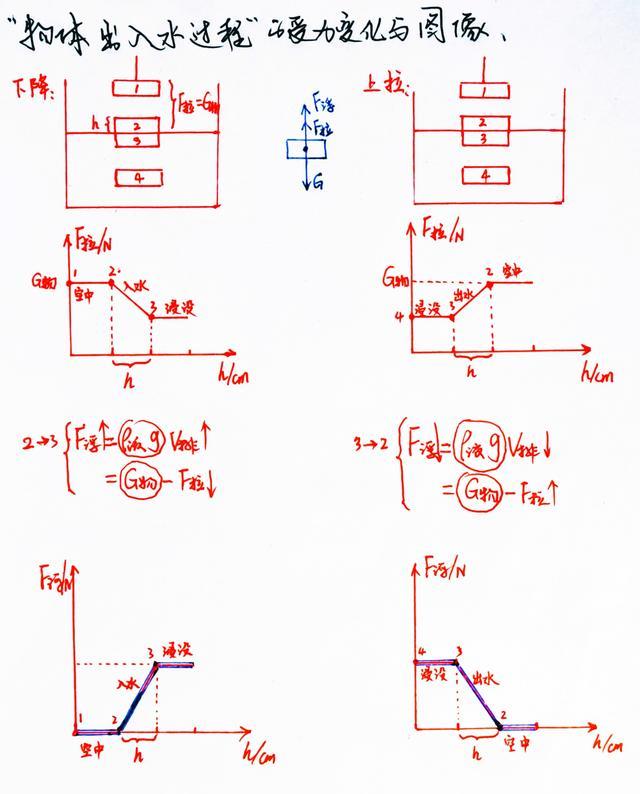 “物体出入水过程”的受力变化与图像、
下降:
1
F拉=G物
h
2
3
4
F浮
F拉
G
上拉:
1
2
3
4
F拉/N
G物
1
2
空中
入水
3
浸没
h
h/cm
F拉/N
G物
2
空中
出水
4
浸没
3
h
h/cm
2→3
F浮↑=ρ液g V排↑
=G物-F拉↓
3→2
F浮↓=ρ液g V排↓
=G物-F拉↑
F浮/N
3
浸没
入水
1
2
空中
h
h/cm
F浮/N
4
3
浸没
出水
2
h
空中
h/cm